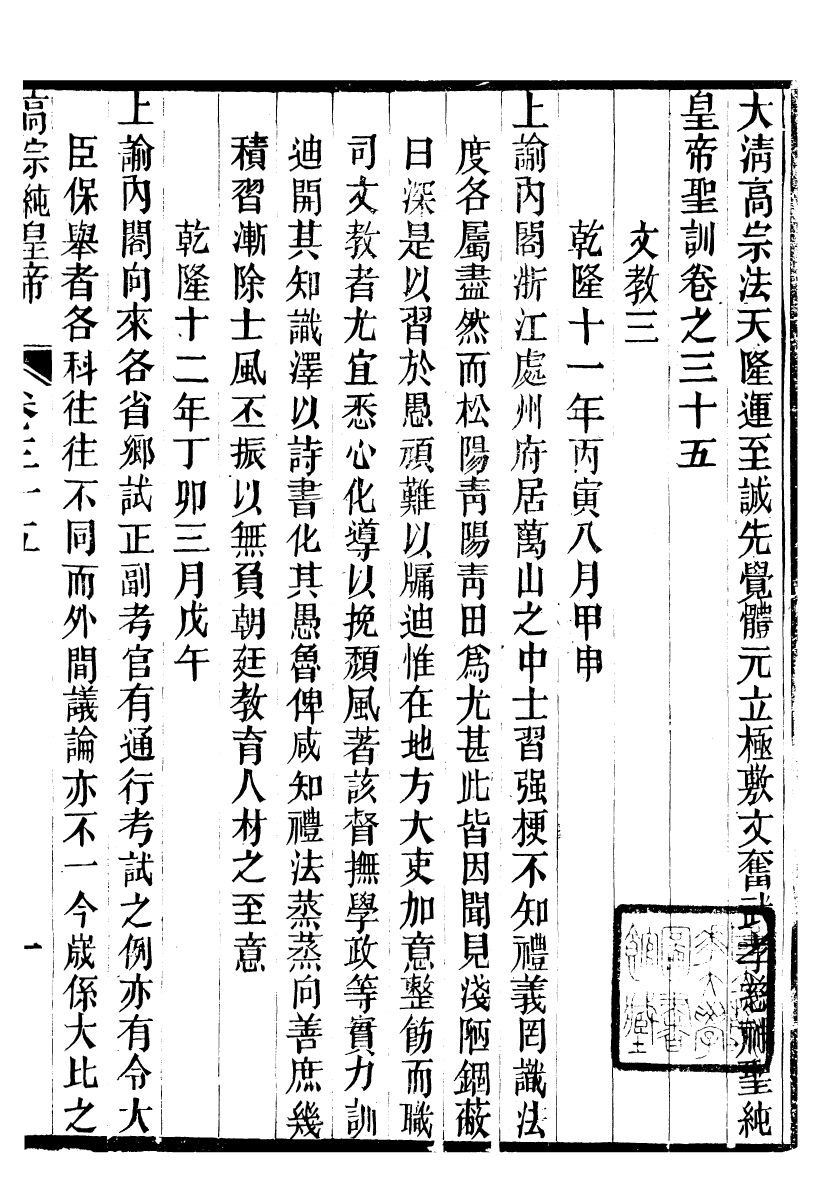 大清高宗法天隆運至誠先覺體元立極敷文奮武孝慈神聖純
皇帝聖訓卷之三十五
文教三
乾隆十一年丙寅八月甲申
上諭內閣浙江處州府居萬山之中士習强梗不知禮義罔識法
度各屬盡然而松陽靑陽靑田爲尤甚此皆因聞見淺陋錮蔽
日深是以習於愚頑難以牖迪惟在地方大吏加意整飭而職
司文教者尤宜悉心化導以挽頹風著該督撫學政等實力訓
迪開其知識澤以詩書化其愚魯俾咸知禮法蒸蒸向善庶幾
積習漸除士風丕振以無負朝廷教育人材之至意
乾隆十二年丁卯三月戊午
上諭內閣向來各省鄉試正副考官有通行考試之例亦有令大
臣保舉者各科往往不同而外間議論亦不一今歲係大比之
高宗純皇帝 卷三十五 一